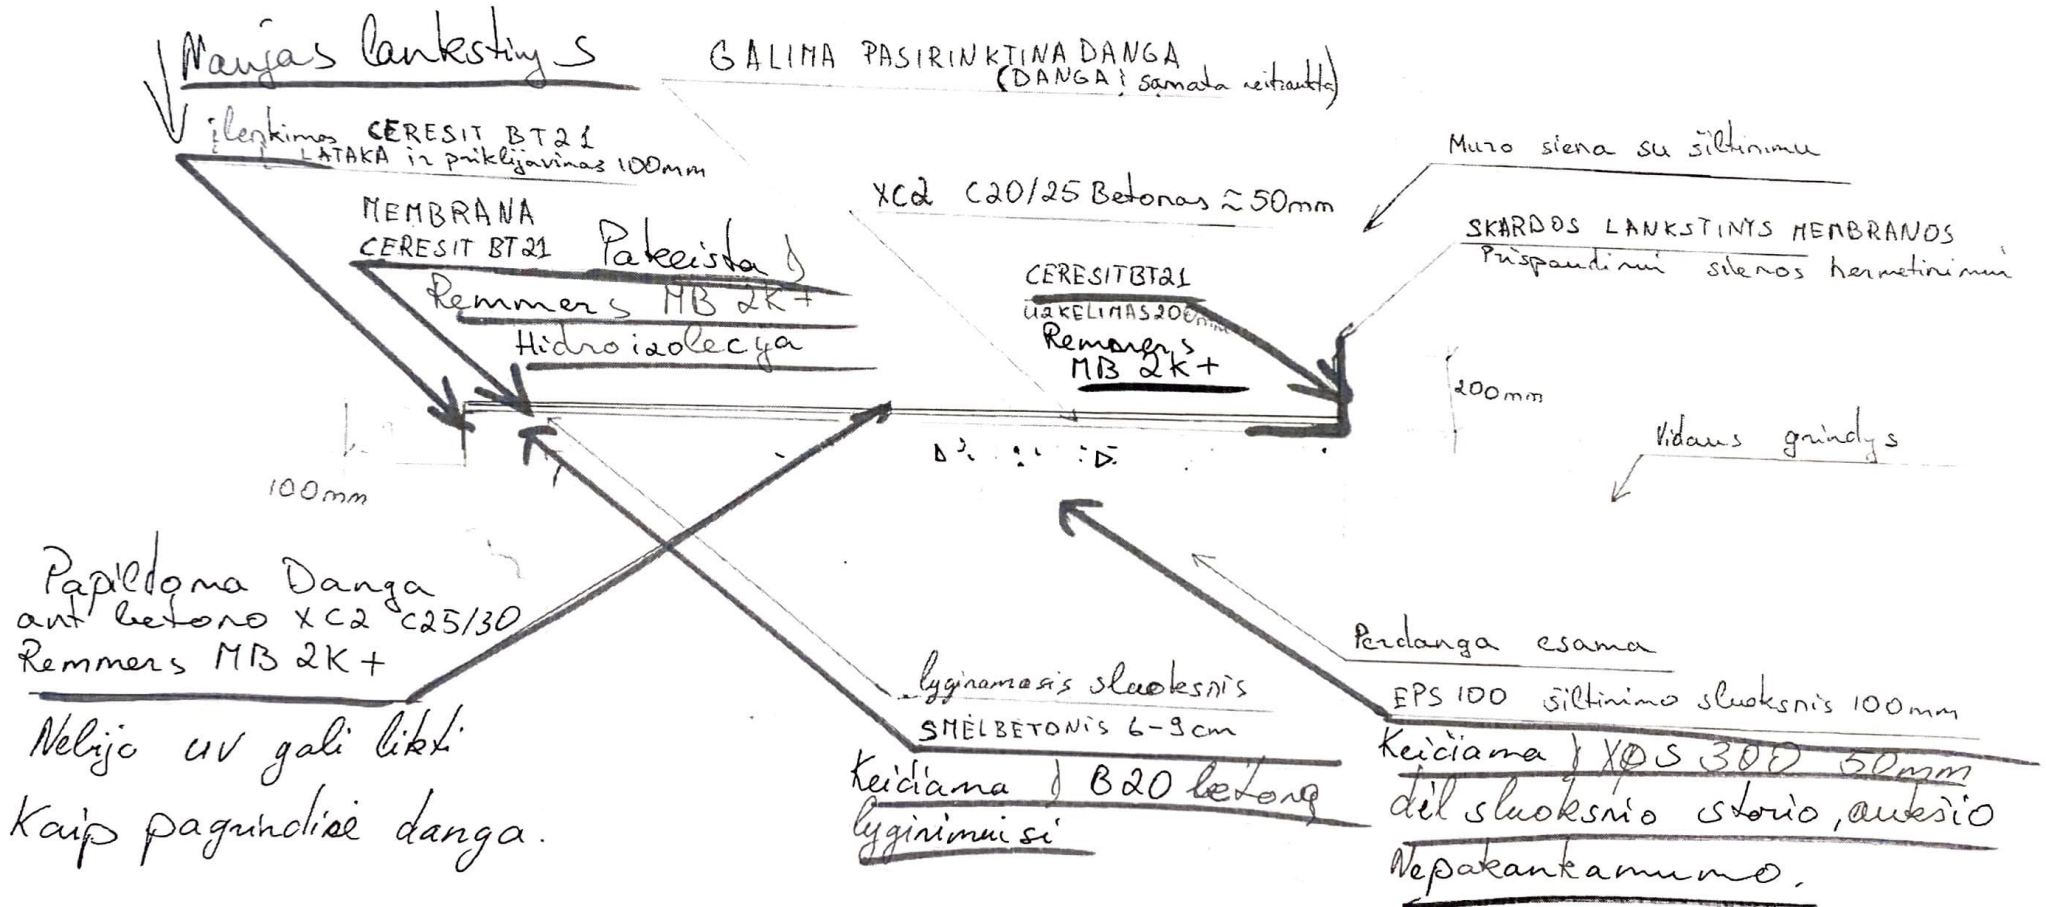 Naujas lankstinys
GALIMA PASIRINKTINA DANGA
(DANGA į samata neitraukta)
įlenkimas CERESIT BT21
LATAKA ir priklijavimas 100mm
Muro siena su šiltinimu
XC2 C20/25 Betonas ≈ 50mm
MEMBRANA
CERESIT BT21 Pakeista į
Remmers MB 2K+
Hidroizolecya
SKARDOS LANKSTINYS MEMBRANOS
Prispaudimui sienos hermetinimui
CERESIT BT21
UŽKELIMAS 200mm
Remmers
MB 2K+
200mm
Vidaus grindys
100mm
Papildoma Danga
ant betono XC2 C25/30
Remmers MB 2K+
Nebijo UV gali likti
Kaip pagrindinė danga.
lyginamasis sluoksnis
SMĖLBETONIS 6-9cm
Keičiama į B20 betoną
lyginimuisi
Perdanga esama
EPS 100 šiltinimo sluoksnis 100mm
Keičiama į XPS 300 50mm
dėl sluoksnio storio, aukščio
Nepakankamumo.